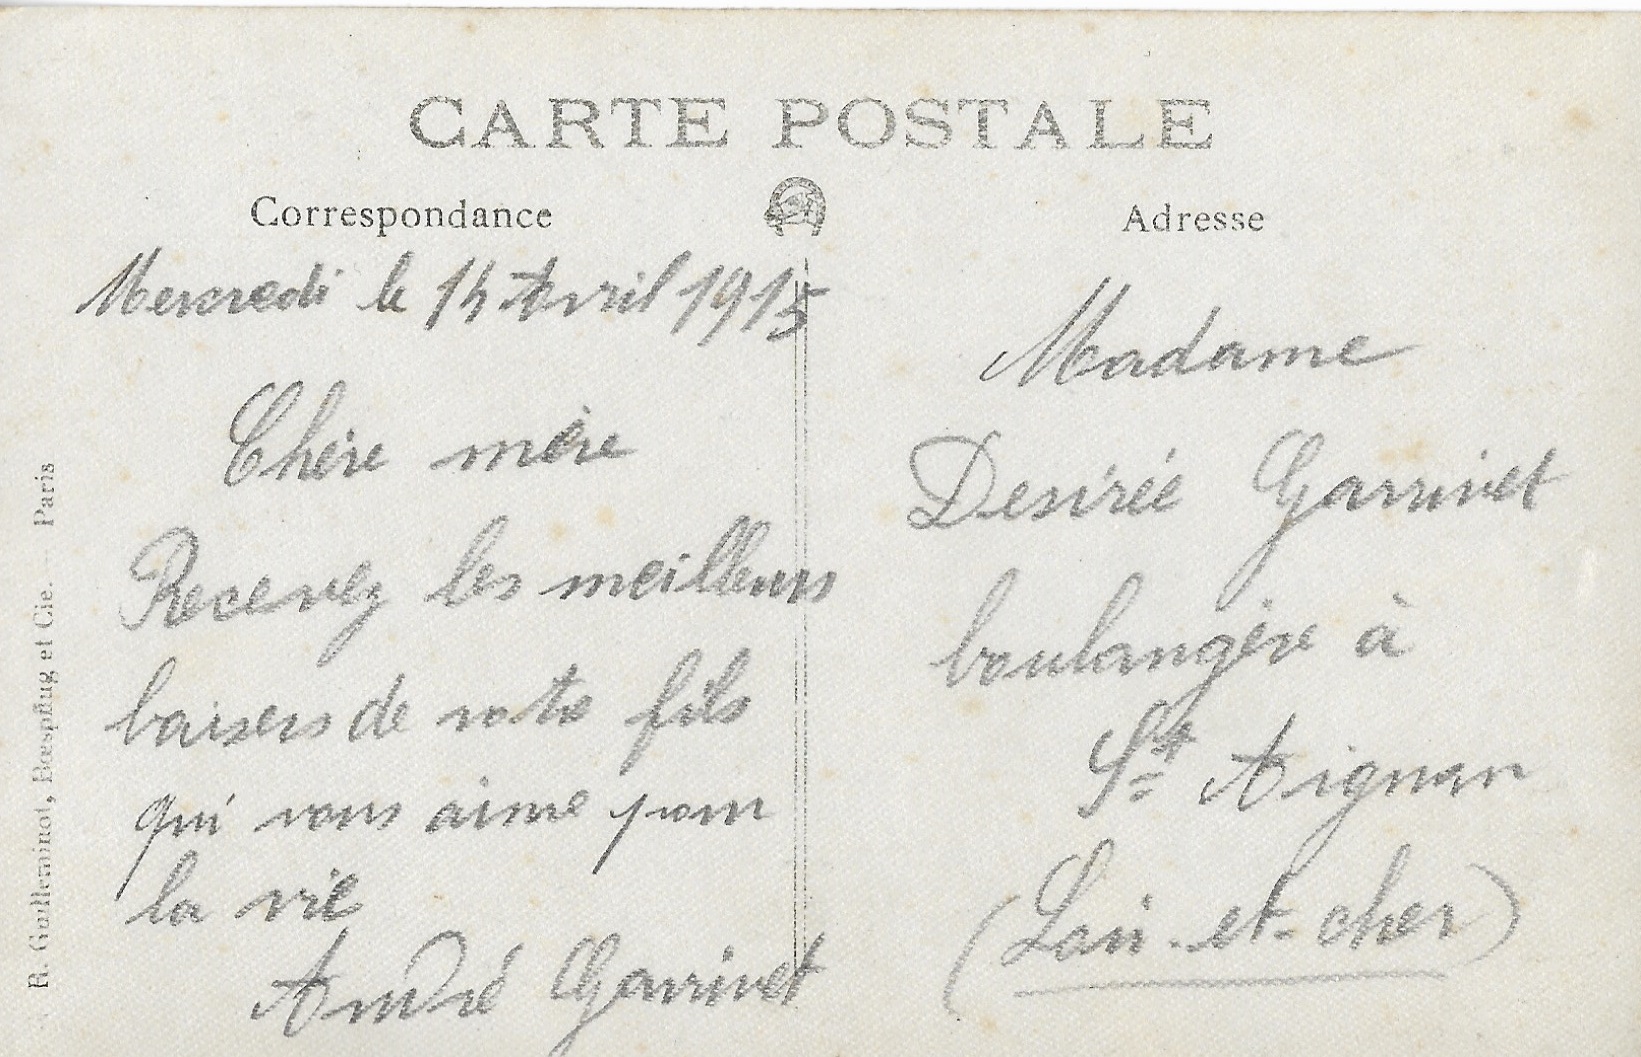 CARTE POSTALE
Correspondance
Adresse
Mercredi le 14 Avril 1915
Chère mère
Recevez les meilleurs
baisers de votre fils
qui vous aime pour
la vie
André Garrivet
Madame
Desirée Garrivet
boulangère à
St Aignan
(Loir-et-cher)
R. Guilleminot, Bœspflug et Cie. — Paris